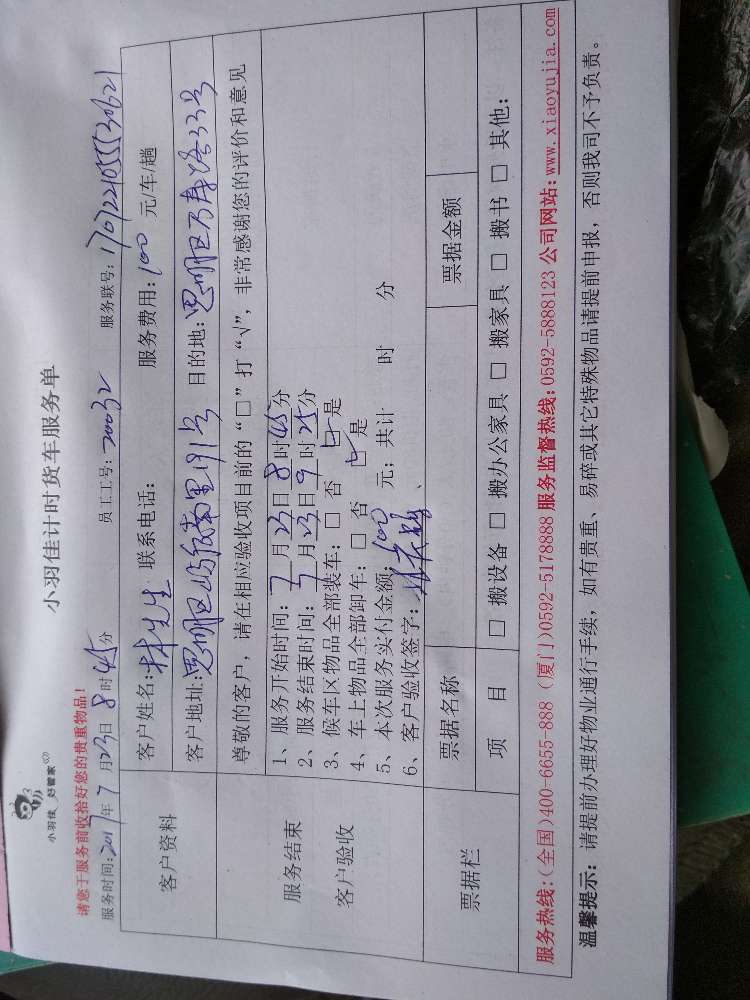 小羽佳 好管家
小羽佳计时货车服务单
请您于服务前收拾好您的贵重物品！
服务时间：2017年7月23日8时45分 员工工号：20032 服务联号：1707221055530621
客户资料
客户姓名：林先生 联系电话： 服务费用：100 元/车/趟
客户地址：思明区屿后南里191号 目的地：思明区万寿路33号
服务结束
客户验收
尊敬的客户，请在相应验收项目前的“□”打“√”，非常感谢您的评价和意见
1、服务开始时间：7月23日8时45分
2、服务结束时间：7月23日9时25分
3、候车区物品全部装车：□ 否 ☑ 是
4、车上物品全部卸车：□ 否 ☑ 是
5、本次服务实付金额：100 元；共计 时 分
6、客户验收签字：
票据栏
票据名称 票据金额
项 目 □ 搬设备 □ 搬办公家具 □ 搬家具 □ 搬书 □ 其他：
服务热线：(全国)400-6655-888 (厦门)0592-5178888 服务监督热线：0592-5888123 公司网站：www.xiaoyujia.com
温馨提示：请提前办理好物业通行手续，如有贵重、易碎或其它特殊物品请提前申报，否则我司不予负责。